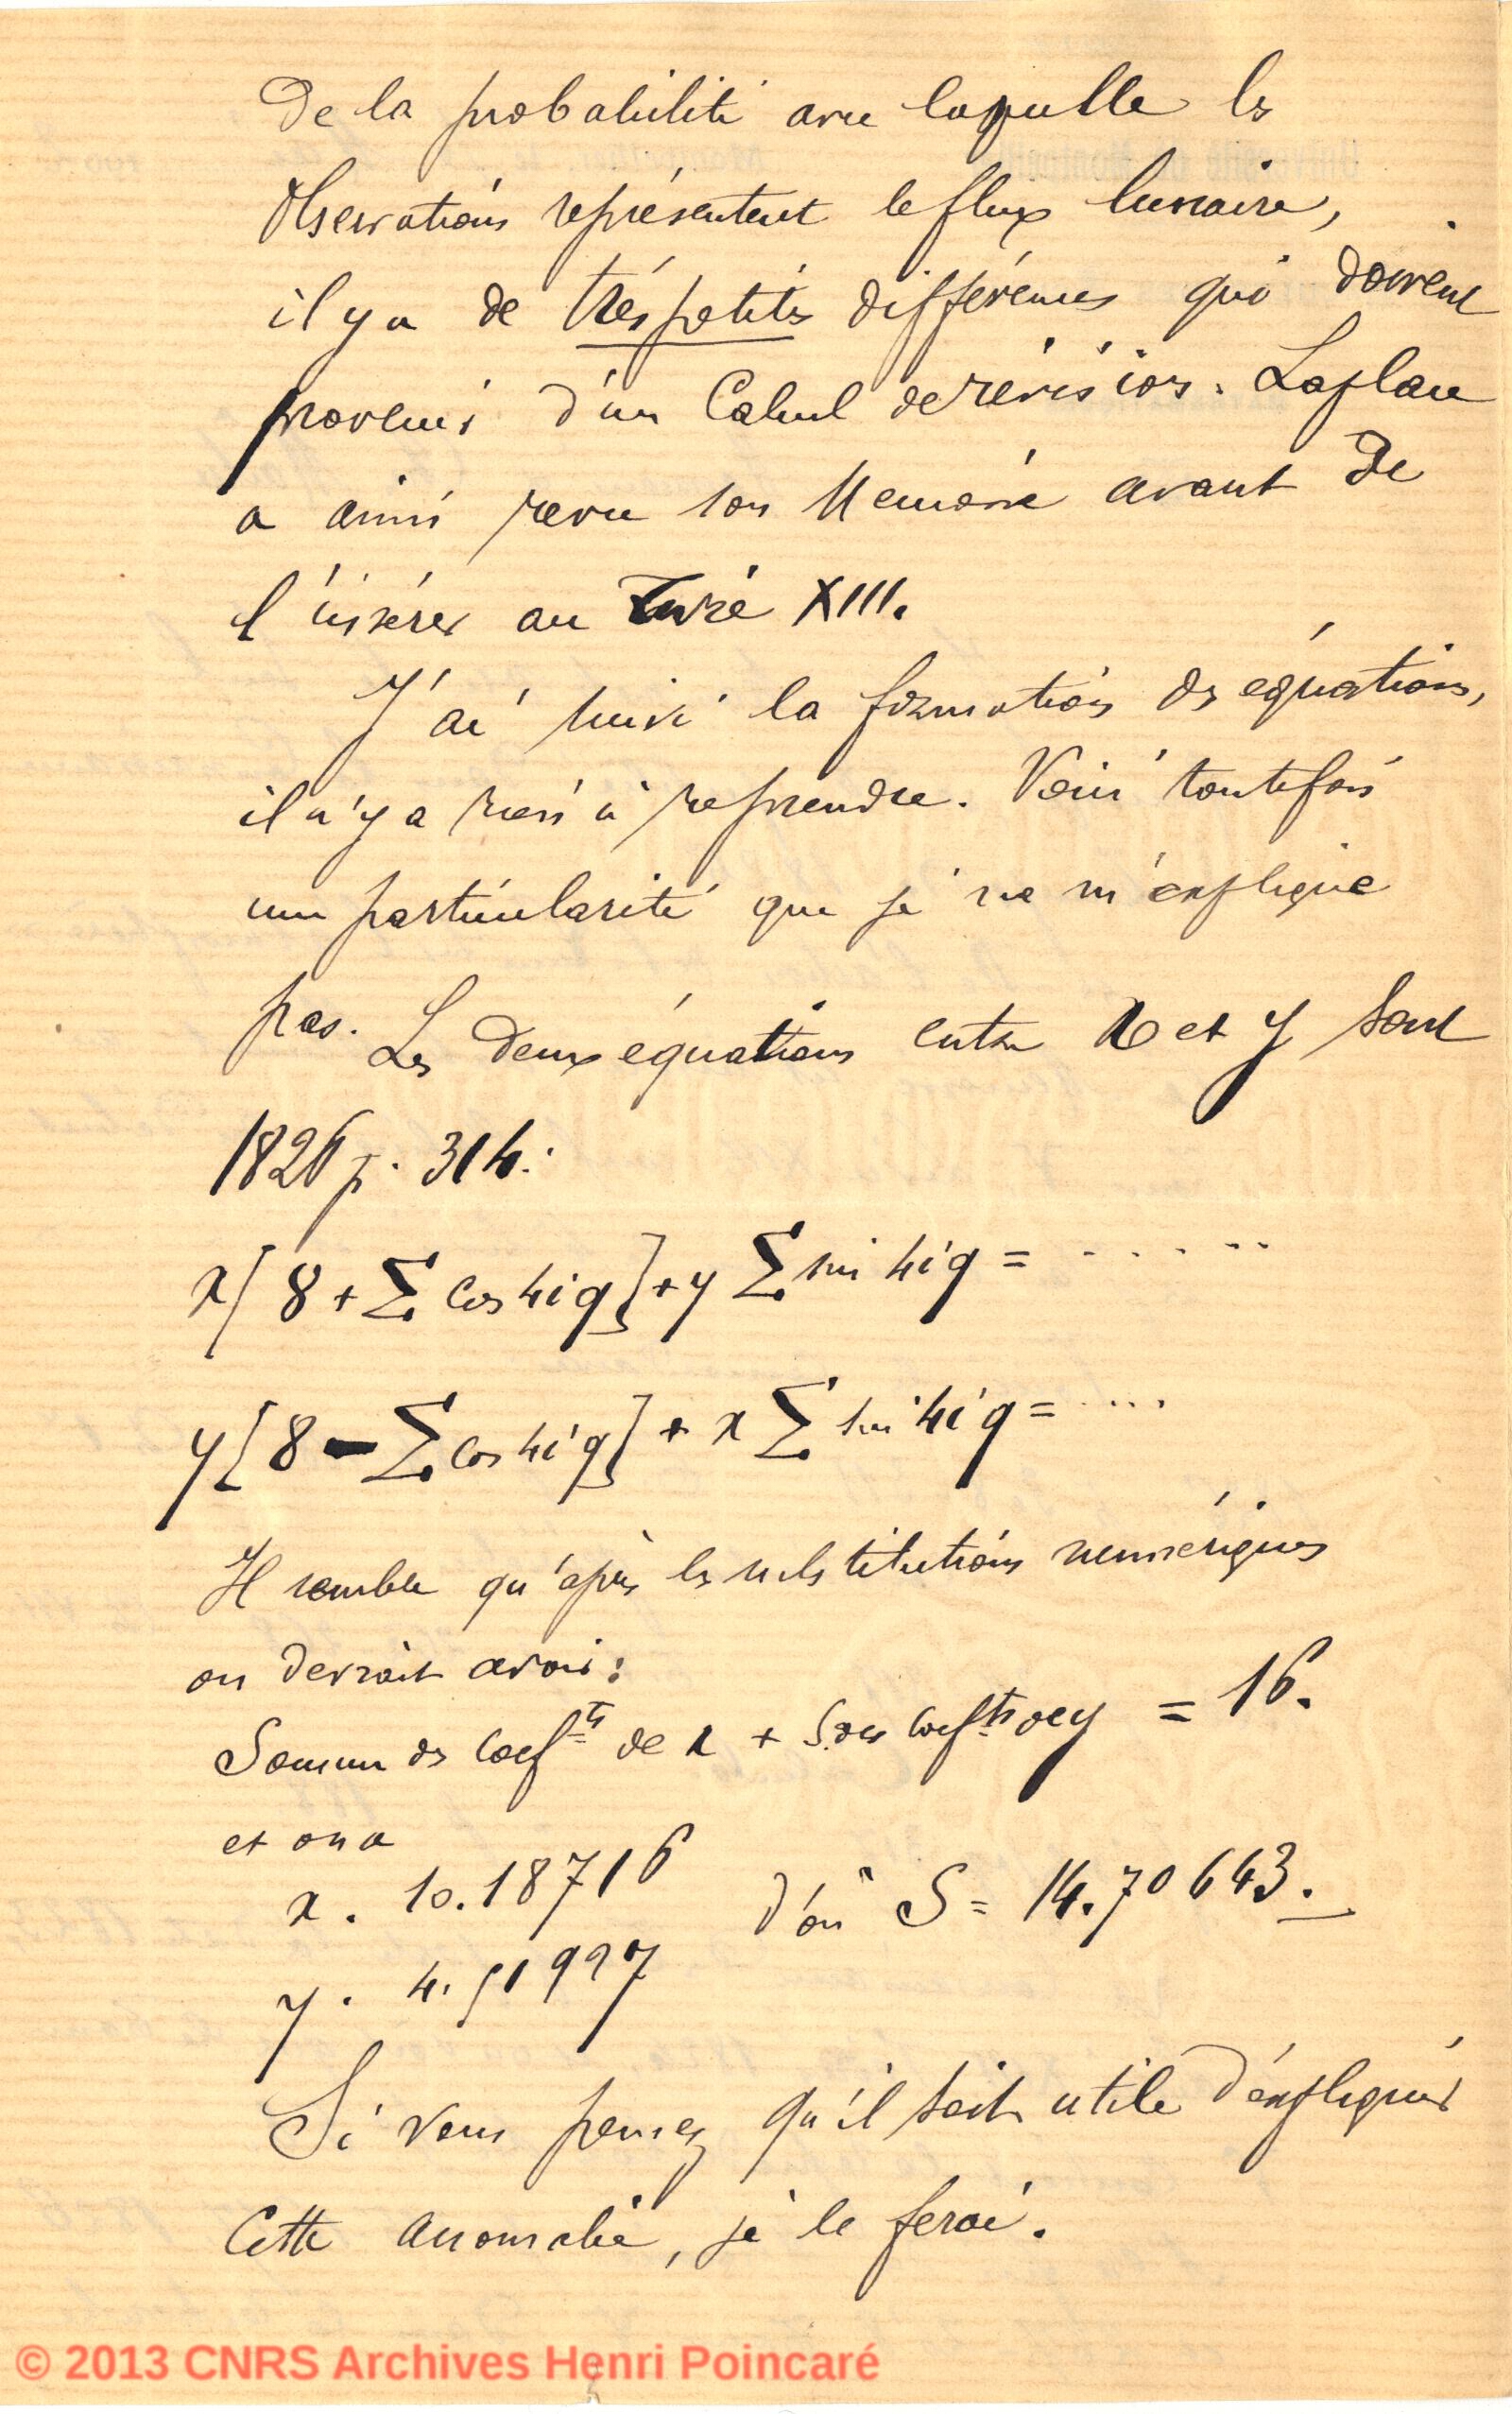 De la probabilité avec laquelle les
Observations représentent le flux lunaire,
il y a de très petites différences qui doivent
provenir d'un Calcul de révision. Laplace
a ainsi revu son Memoire avant de
l'insérer au Livre XIII.
J'ai suivi la formation des équations,
il n'y a rien à reprendre. Voici toutefois
une particularité que je ne m'explique
pas. Les deux équations entre x et y sont
1826 p. 314:
x[8 + Σ Cos 4iq] + y Σ sin 4iq = ......
y[8 − Σ Cos 4iq] + x Σ sin 4iq = ....
Il semble qu'après les substitutions numériques
on devrait avoir :
Somme des Coefts de x + S. des Coefts de y = 16.
et on a
x. 10.18716 d'où S = 14.70643.
y. 4.51927
Si vous pensez qu'il soit utile d'expliquer
Cette anomalie, je le ferai.
© 2013 CNRS Archives Henri Poincaré